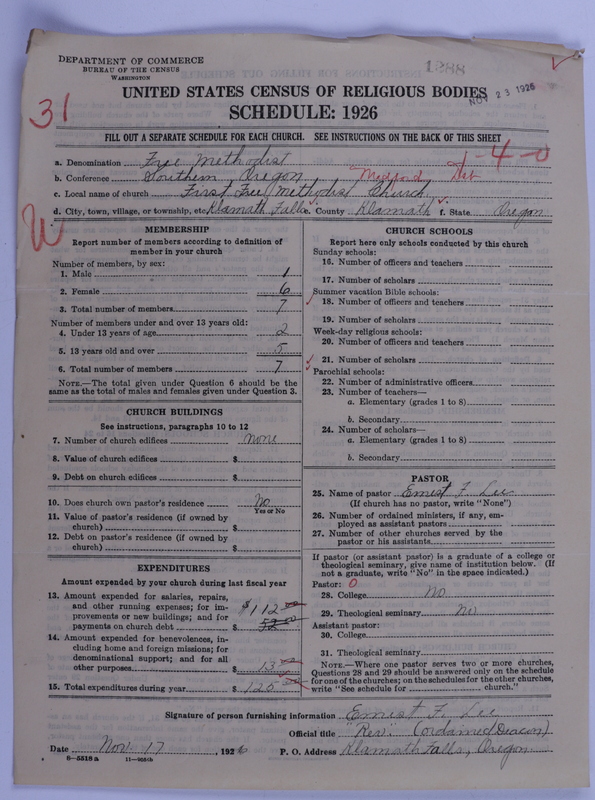 DEPARTMENT OF COMMERCE
BUREAU OF THE CENSUS
WASHINGTON
1288
NOV 23 1926
UNITED STATES CENSUS OF RELIGIOUS BODIES
SCHEDULE: 1926
31
FILL OUT A SEPARATE SCHEDULE FOR EACH CHURCH. SEE INSTRUCTIONS ON THE BACK OF THIS SHEET
a. Denomination Free Methodist
1-4-0
b. Conference Southern Oregon Medford Dist
c. Local name of church First Free Methodist Church
d. City, town, village, or township, etc. Klamath Falls e. County Klamath f. State Oregon
W
MEMBERSHIP
Report number of members according to definition of
member in your church
Number of members, by sex:
1. Male 1
2. Female 6
3. Total number of members 7
Number of members under and over 13 years old:
4. Under 13 years of age 2
5. 13 years old and over 5
6. Total number of members 7
NOTE.—The total given under Question 6 should be the
same as the total of males and females given under Question 3.
CHURCH BUILDINGS
See instructions, paragraphs 10 to 12
7. Number of church edifices none
8. Value of church edifices $
9. Debt on church edifices $
10. Does church own pastor's residence No
Yes or No
11. Value of pastor's residence (if owned by
church) $
12. Debt on pastor's residence (if owned by
church) $
EXPENDITURES
Amount expended by your church during last fiscal year
13. Amount expended for salaries, repairs,
and other running expenses; for im-
provements or new buildings; and for
payments on church debt $ $112 00
14. Amount expended for benevolences, in-
cluding home and foreign missions; for
denominational support; and for all
other purposes $ 13
15. Total expenditures during year $ 125
CHURCH SCHOOLS
Report here only schools conducted by this church
Sunday schools:
16. Number of officers and teachers
17. Number of scholars
Summer vacation Bible schools:
18. Number of officers and teachers
19. Number of scholars
Week-day religious schools:
20. Number of officers and teachers
21. Number of scholars
Parochial schools:
22. Number of administrative officers
23. Number of teachers—
a. Elementary (grades 1 to 8)
b. Secondary
24. Number of scholars—
a. Elementary (grades 1 to 8)
b. Secondary
PASTOR
25. Name of pastor Ernest F. Lee
(If church has no pastor, write "None")
26. Number of ordained ministers, if any, em-
ployed as assistant pastors
27. Number of other churches served by the
pastor or his assistants
If pastor (or assistant pastor) is a graduate of a college or
theological seminary, give name of institution below. (If
not a graduate, write "No" in the space indicated.)
Pastor: 0
28. College No
29. Theological seminary No
Assistant pastor:
30. College
31. Theological seminary
NOTE.—Where one pastor serves two or more churches,
Questions 28 and 29 should be answered only on the schedule
for one of the churches; on the schedules for the other churches,
write "See schedule for church."
Signature of person furnishing information Ernest F. Lee
Official title Rev. (ordained Deacon)
Date Nov. 17, 1926 P. O. Address Klamath Falls, Oregon
8—5518a